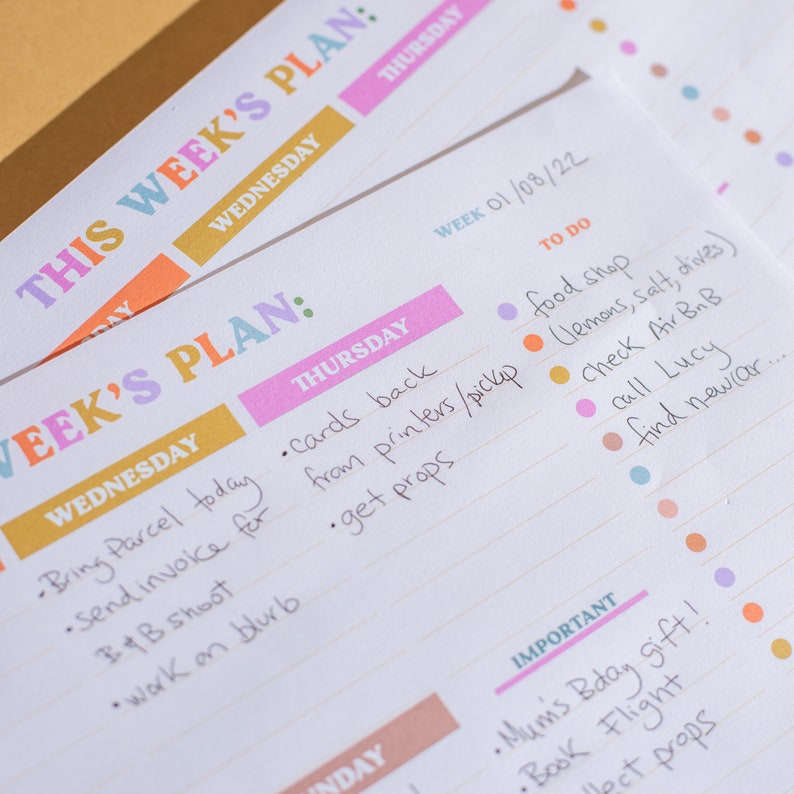 THIS WEEK'S PLAN:
WEDNESDAY
THURSDAY
WEEK 01/08/22
WEEK'S PLAN:
WEDNESDAY
• Bring Parcel today
• send invoice for
B&B shoot
• work on blurb
THURSDAY
• cards back
from printers/pickup
• get props
TO DO
food shop
(lemons, salt, olives)
check AirBnB
call Lucy
find new car...
IMPORTANT
• Mum's Bday gift!
• Book Flight
props